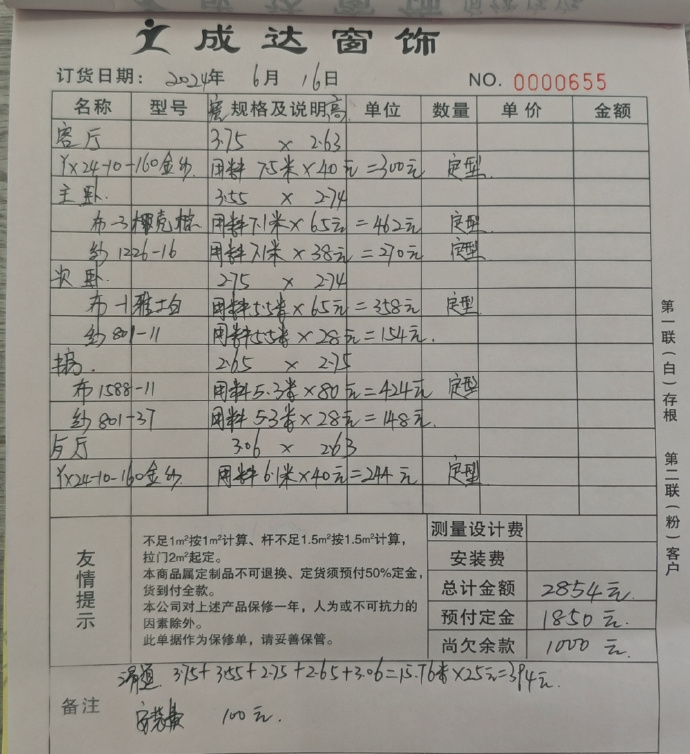 成达窗饰
订货日期: 2024年 6月 16日 NO. 0000655
名称 型号 宽 规格及说明 高 单位 数量 单价 金额
客厅 3.75 x 2.63
YX24-10-160金纱 用料 7.5米×40元=300元 定型
主卧 3.55 x 2.74
布-3 用料7.1米×65元=462元 定型
纱1226-16 用料7.1米×38元=270元 定型
次卧 2.75 x 2.74
布-1雅士白 用料5.5米×65元=358元 定型
纱801-11 用料5.5米×28元=154元.
2.65 x 2.75
布1588-11 用料5.3米×80元=424元 定型
纱801-37 用料5.3米×28元=148元.
厅 3.06 x 2.63
YX24-10-160金纱 用料6.1米×40元=244元 定型
友情提示
不足1m²按1m²计算、杆不足1.5m²按1.5m²计算,
拉门2m²起定。
本商品属定制品不可退换、定货须预付50%定金,
货到付全款。
本公司对上述产品保修一年，人为或不可抗力的
因素除外。
此单据作为保修单，请妥善保管。
测量设计费
安装费
总计金额 2854元
预付定金 1850元
尚欠余款 1000元
备注
滑道 3.75+3.55+2.75+2.65+3.06=15.76米×25元=394元
安装费 100元.
第一联(白)存根 第二联(粉)客户